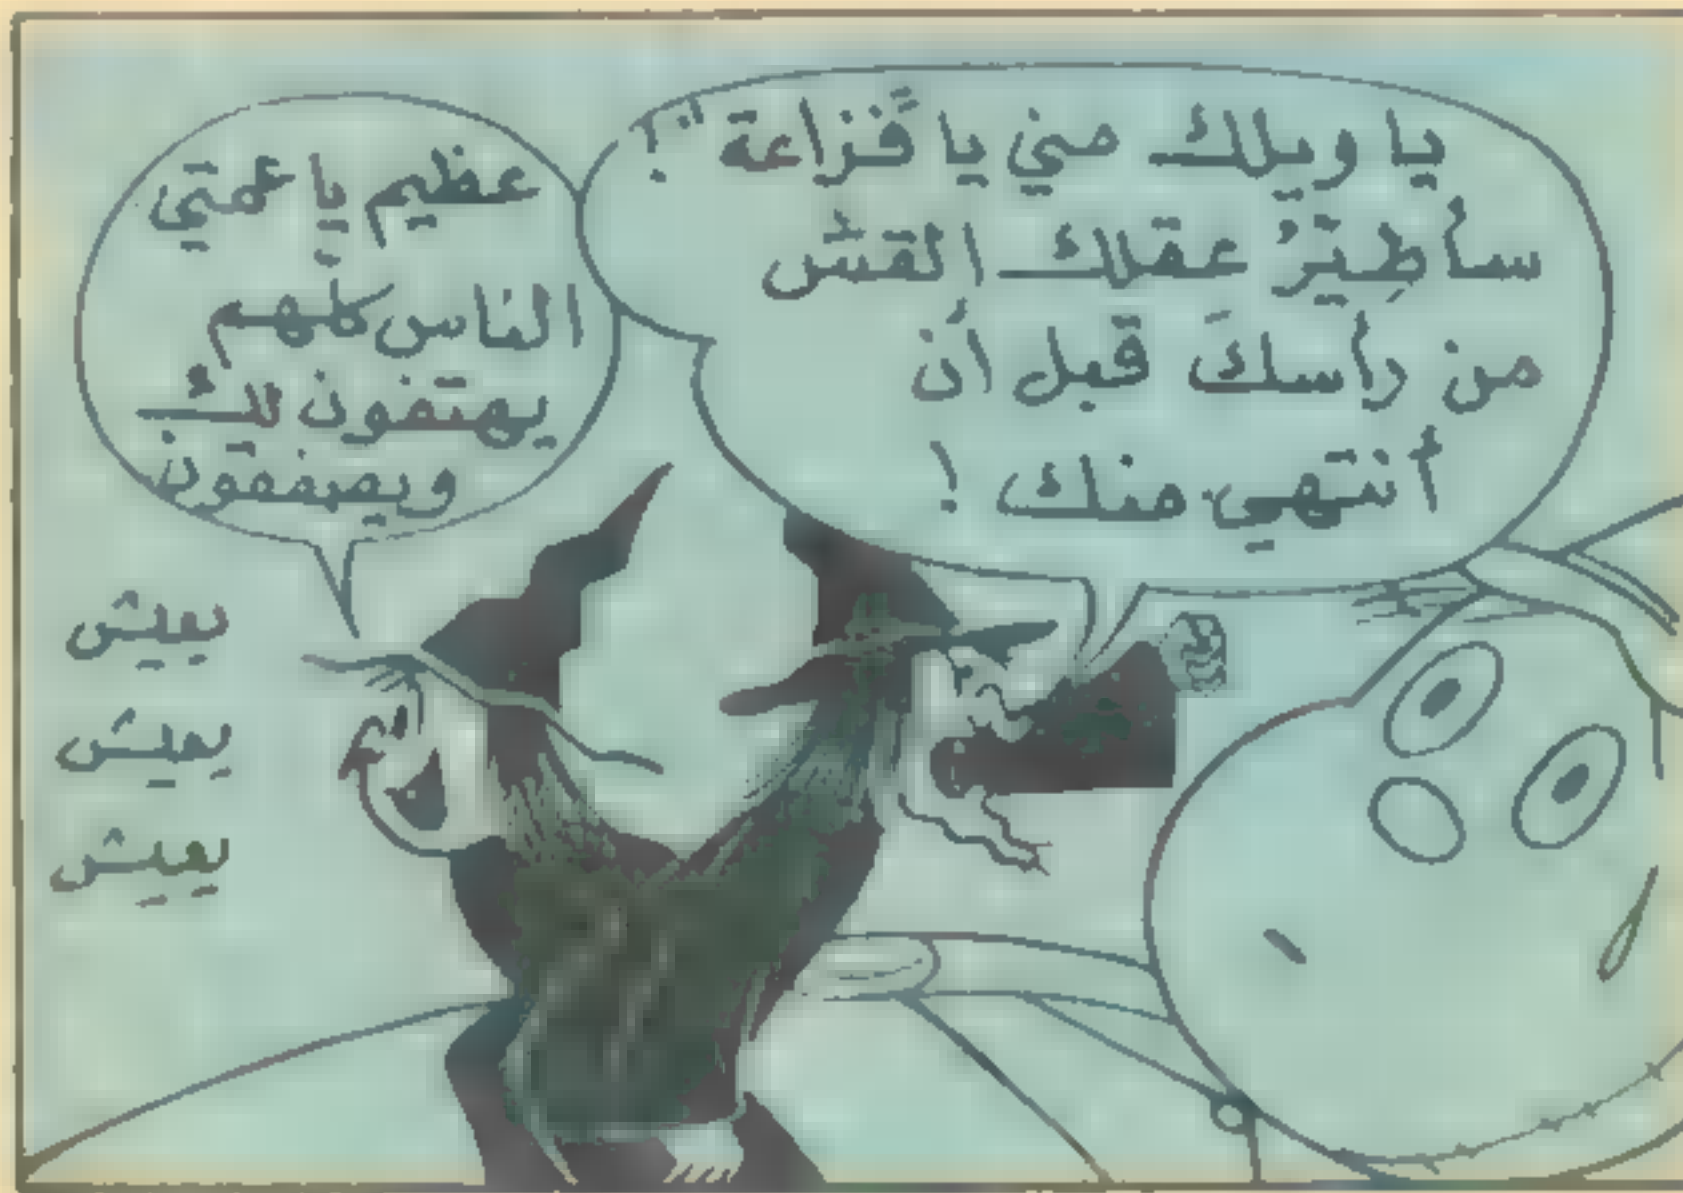 يا ويلك مني يا قزاعة !
سأطيّرُ عقلك القش
من رأسكَ قبل أن
أنتهي منك !
عظيم يا عمتي
الناس كلهم
يهتفون لك
ويصفقون
يعيش
يعيش
يعيش